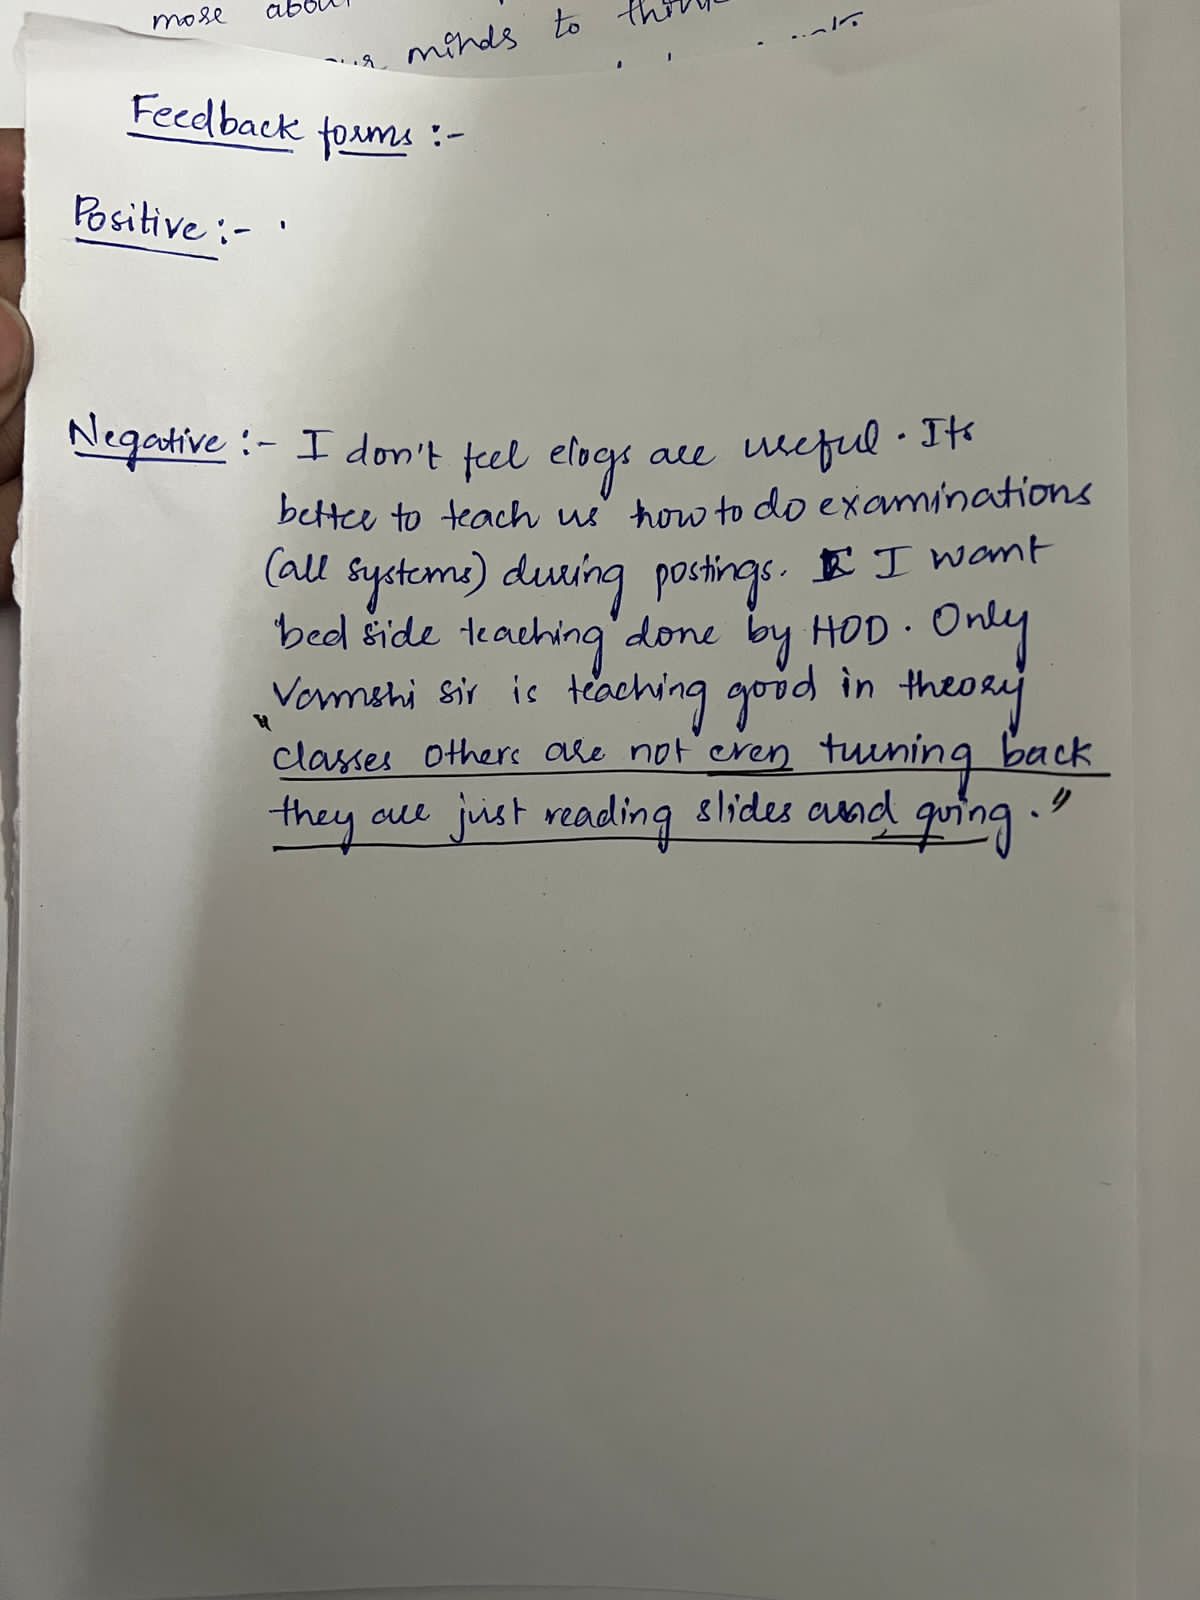 more about
minds to
Feedback forms :-
Positive :- .
Negative :- I don't feel elogs are useful. Its
better to teach us how to do examinations
(all systems) during postings. I want
bed side teaching done by HOD. Only
Vamshi sir is teaching good in theory
"classes others are not even turning back
they are just reading slides and going."